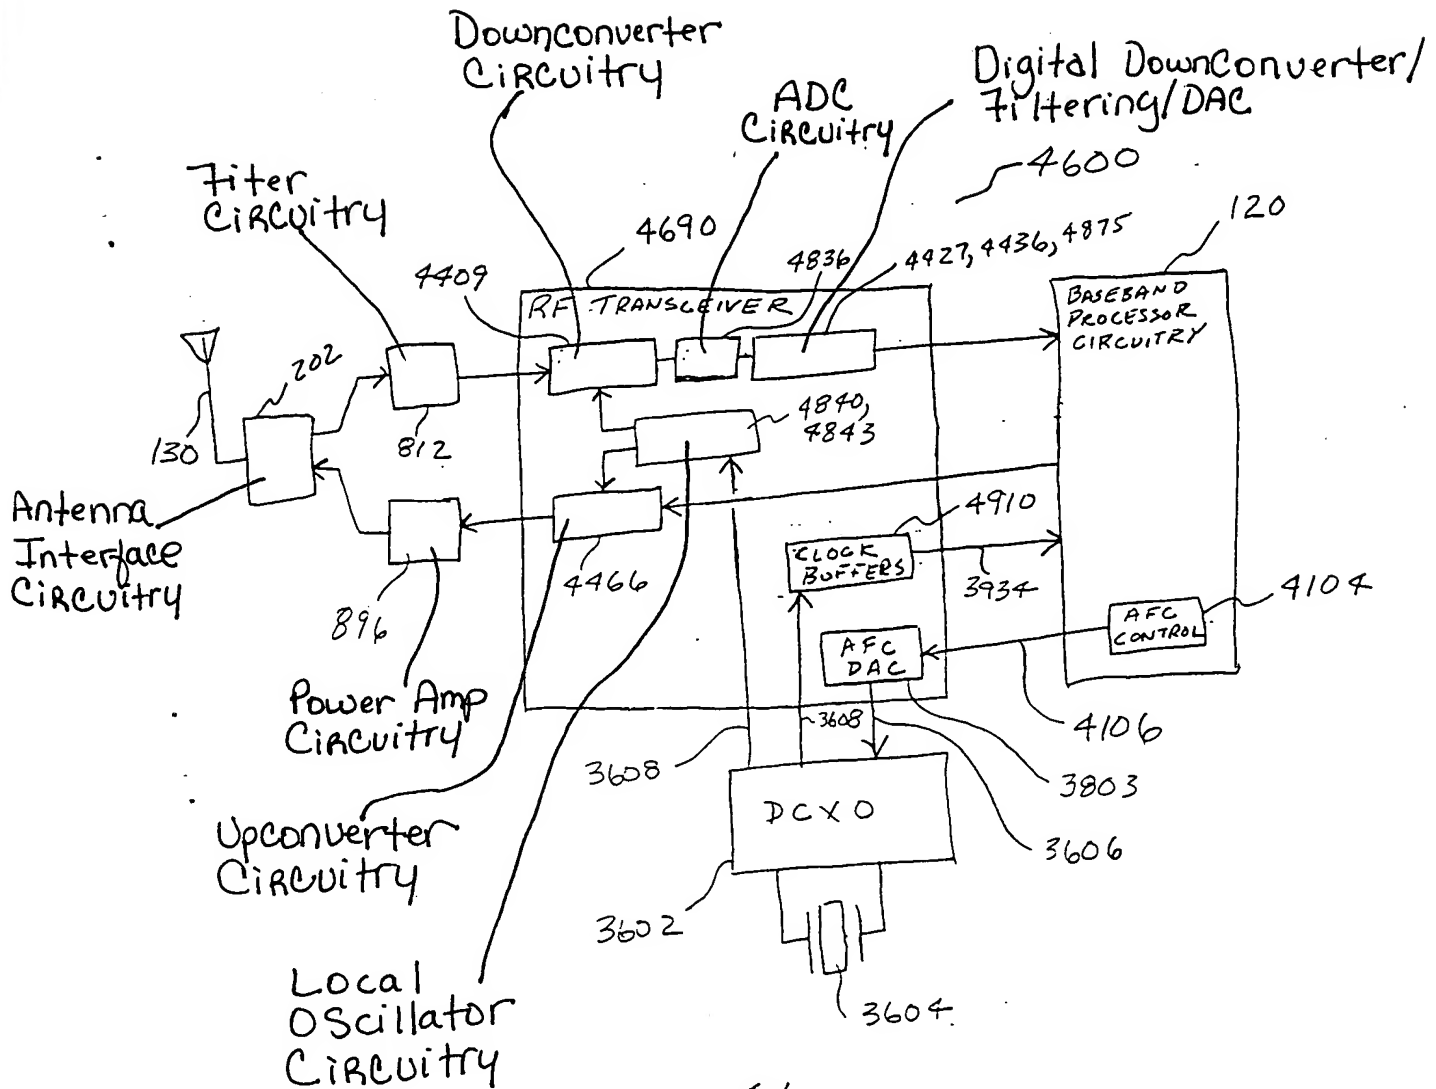 Downconverter
Circuitry
Digital Downconverter/
Filtering/DAC
ADC
Circuitry
4600
Fiter
Circuitry
4690
4836
4427, 4436, 4875
120
4409
RF TRANSCEIVER
BASEBAND
PROCESSOR
CIRCUITRY
202
4840,
4843
130
812
Antenna
Interface
Circuitry
4910
CLOCK
BUFFERS
3934
4466
896
AFC
CONTROL
4104
AFC
DAC
Power Amp
Circuitry
3608
3608
4106
3803
DCXO
3606
Upconverter
Circuitry
3602
Local
Oscillator
Circuitry
3604